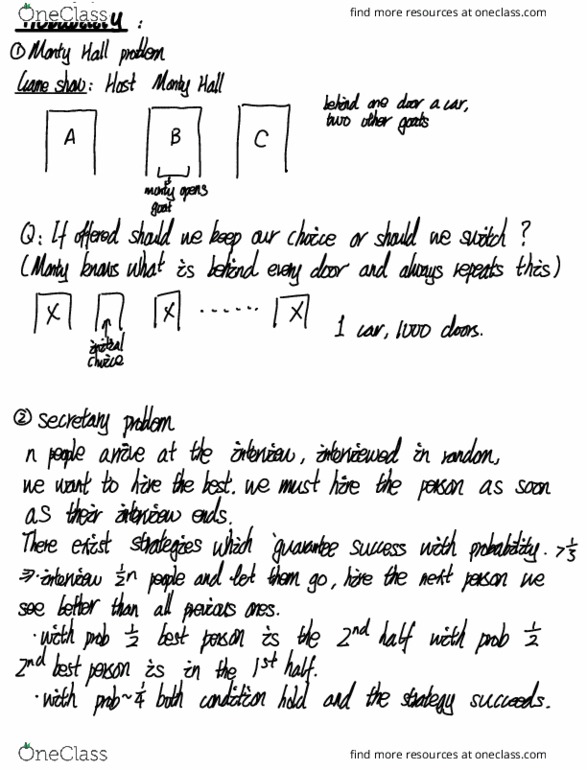 OneClass
find more resources at oneclass.com
Probability :
① Monty Hall problem
Game show: Host Monty Hall
behind one door a car,
two other goats
A B C
monty opens
goat
Q: If offered should we keep our choice or should we switch ?
(Monty knows what is behind every door and always repeats this)
X X ...... X
initial
choice
1 car, 1000 doors.
② secretary problem
n people arrive at the interview, interviewed in random,
we want to hire the best. we must hire the person as soon
as their interview ends.
There exist strategies which guarantee success with probability. > 1/3
⇒ · interview ½n people and let them go, hire the next person we
see better than all previous ones.
· with prob ½ best person is the 2nd half with prob ½
2nd best person is in the 1st half.
· with prob ~ ¼ both condition hold and the strategy succeeds.
OneClass
find more resources at oneclass.com